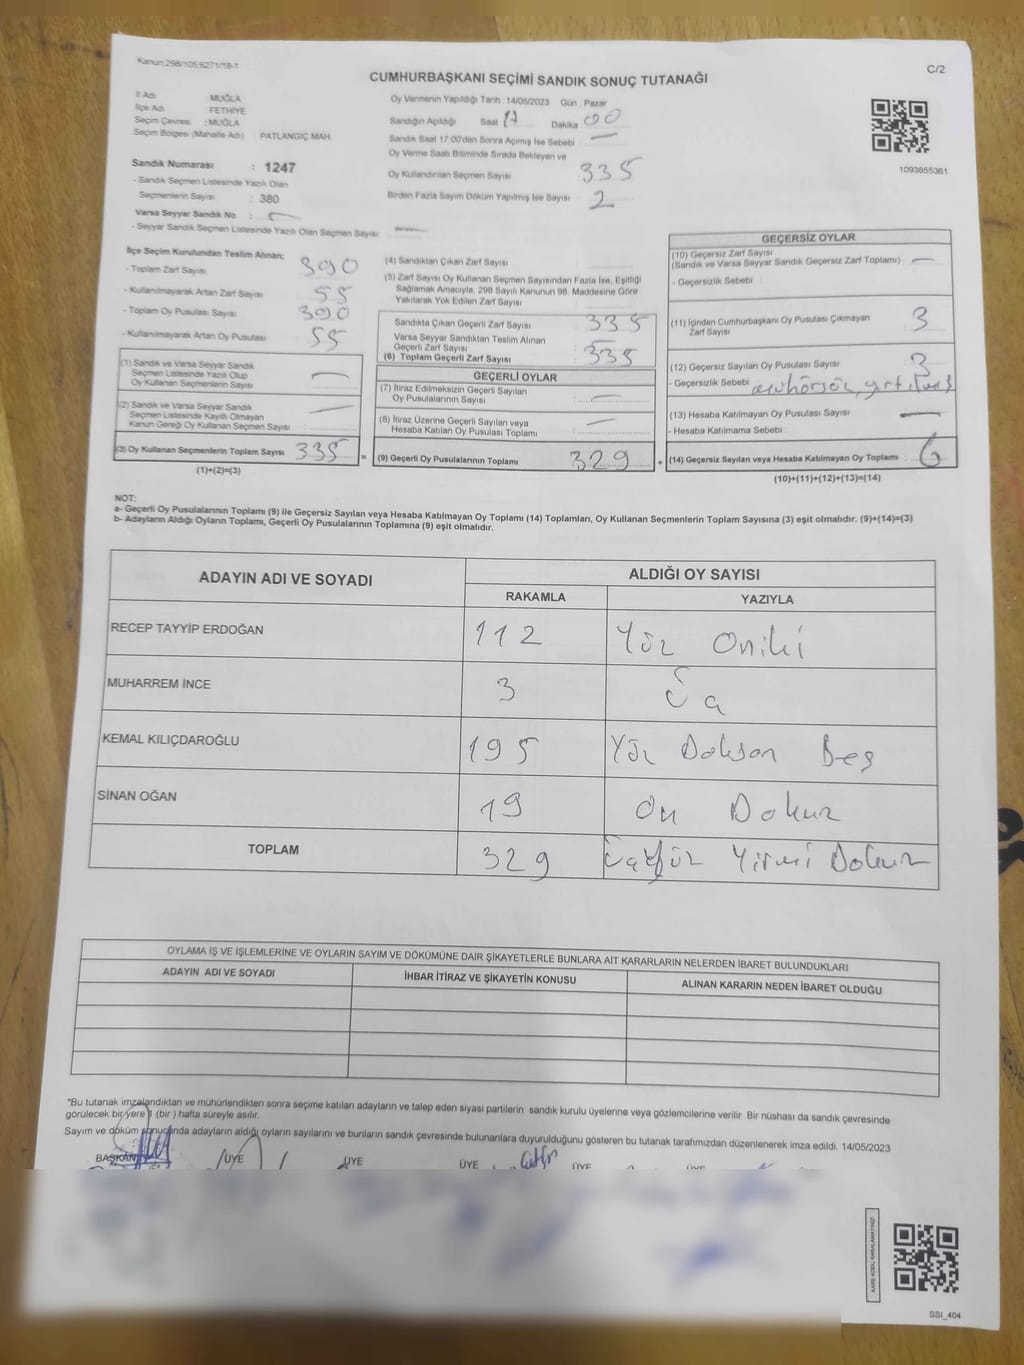 Kanun:298/105;6271/18-1
C/2
CUMHURBAŞKANI SEÇİMİ SANDIK SONUÇ TUTANAĞI
İl Adı : MUĞLA
İlçe Adı : FETHİYE
Seçim Çevresi : MUĞLA
Seçim Bölgesi (Mahalle Adı) : PATLANGIÇ MAH.
Sandık Numarası : 1247
- Sandık Seçmen Listesinde Yazılı Olan
Seçmenlerin Sayısı : 380
Varsa Seyyar Sandık No :
- Seyyar Sandık Seçmen Listesinde Yazılı Olan Seçmen Sayısı :
Oy Vermenin Yapıldığı Tarih : 14/05/2023 Gün : Pazar
Sandığın Açıldığı Saat 17 Dakika 00
Sandık Saat 17.00'den Sonra Açımış İse Sebebi :
Oy Verme Saati Bitiminde Sırada Bekleyen ve
Oy Kullandırılan Seçmen Sayısı : 335
Birden Fazla Sayım Döküm Yapılmış İse Sayısı : 2
1093855361
İlçe Seçim Kurulundan Teslim Alınan;
- Toplam Zarf Sayısı 390
- Kullanılmayarak Artan Zarf Sayısı 55
- Toplam Oy Pusulası Sayısı 390
- Kullanılmayarak Artan Oy Pusulası 55
(1) Sandık ve Varsa Seyyar Sandık
Seçmen Listesinde Yazılı Olup
Oy Kullanan Seçmenlerin Sayısı :
(2) Sandık ve Varsa Seyyar Sandık
Seçmen Listesinde Kayıtlı Olmayan
Kanun Gereği Oy Kullanan Seçmen Sayısı :
(3) Oy Kullanan Seçmenlerin Toplam Sayısı : 335 =
(1)+(2)=(3)
(4) Sandıktan Çıkan Zarf Sayısı :
(5) Zarf Sayısı Oy Kullanan Seçmen Sayısından Fazla İse, Eşitliği
Sağlamak Amacıyla, 298 Sayılı Kanunun 98. Maddesine Göre
Yakılarak Yok Edilen Zarf Sayısı :
Sandıkta Çıkan Geçerli Zarf Sayısı : 335
Varsa Seyyar Sandıktan Teslim Alınan
Geçerli Zarf Sayısı :
(6) Toplam Geçerli Zarf Sayısı : 335
GEÇERLİ OYLAR
(7) İtiraz Edilmeksizin Geçerli Sayılan
Oy Pusulalarının Sayısı :
(8) İtiraz Üzerine Geçerli Sayılan veya
Hesaba Katılan Oy Pusulası Toplamı :
(9) Geçerli Oy Pusulalarının Toplamı : 329 +
GEÇERSİZ OYLAR
(10) Geçersiz Zarf Sayısı
(Sandık ve Varsa Seyyar Sandık Geçersiz Zarf Toplamı) :
- Geçersizlik Sebebi :
(11) İçinden Cumhurbaşkanı Oy Pusulası Çıkmayan
Zarf Sayısı : 3
(12) Geçersiz Sayılan Oy Pusulası Sayısı : 3
- Geçersizlik Sebebi :
(13) Hesaba Katılmayan Oy Pusulası Sayısı :
- Hesaba Katılmama Sebebi :
(14) Geçersiz Sayılan veya Hesaba Katılmayan Oy Toplamı : 6
(10)+(11)+(12)+(13)=(14)
NOT:
a- Geçerli Oy Pusulalarının Toplamı (9) ile Geçersiz Sayılan veya Hesaba Katılmayan Oy Toplamı (14) Toplamları, Oy Kullanan Seçmenlerin Toplam Sayısına (3) eşit olmalıdır. (9)+(14)=(3)
b- Adayların Aldığı Oyların Toplamı, Geçerli Oy Pusulalarının Toplamına (9) eşit olmalıdır.
ADAYIN ADI VE SOYADI
ALDIĞI OY SAYISI
RAKAMLA YAZIYLA
RECEP TAYYİP ERDOĞAN 112 Yüz Oniki
MUHARREM İNCE 3 Üç
KEMAL KILIÇDAROĞLU 195 Yüz Doksan Beş
SİNAN OĞAN 19 On Dokuz
TOPLAM 329 Üçyüz Yirmi Dokuz
OYLAMA İŞ VE İŞLEMLERİNE VE OYLARIN SAYIM VE DÖKÜMÜNE DAİR ŞİKAYETLERLE BUNLARA AİT KARARLARIN NELERDEN İBARET BULUNDUKLARI
ADAYIN ADI VE SOYADI İHBAR İTİRAZ VE ŞİKAYETİN KONUSU ALINAN KARARIN NEDEN İBARET OLDUĞU
"Bu tutanak imzalandıktan ve mühürlendikten sonra seçime katılan adayların ve talep eden siyasi partilerin sandık kurulu üyelerine veya gözlemcilerine verilir. Bir nüshası da sandık çevresinde
görülecek bir yere 1 (bir ) hafta süreyle asılır.
Sayım ve döküm sonucunda adayların aldığı oyların sayılarını ve bunların sandık çevresinde bulunanlara duyurulduğunu gösteren bu tutanak tarafımızdan düzenlenerek imza edildi. 14/05/2023
BAŞKAN ÜYE ÜYE ÜYE ÜYE ÜYE
KARE KODU KARALAMAYINIZ!
SSI_404